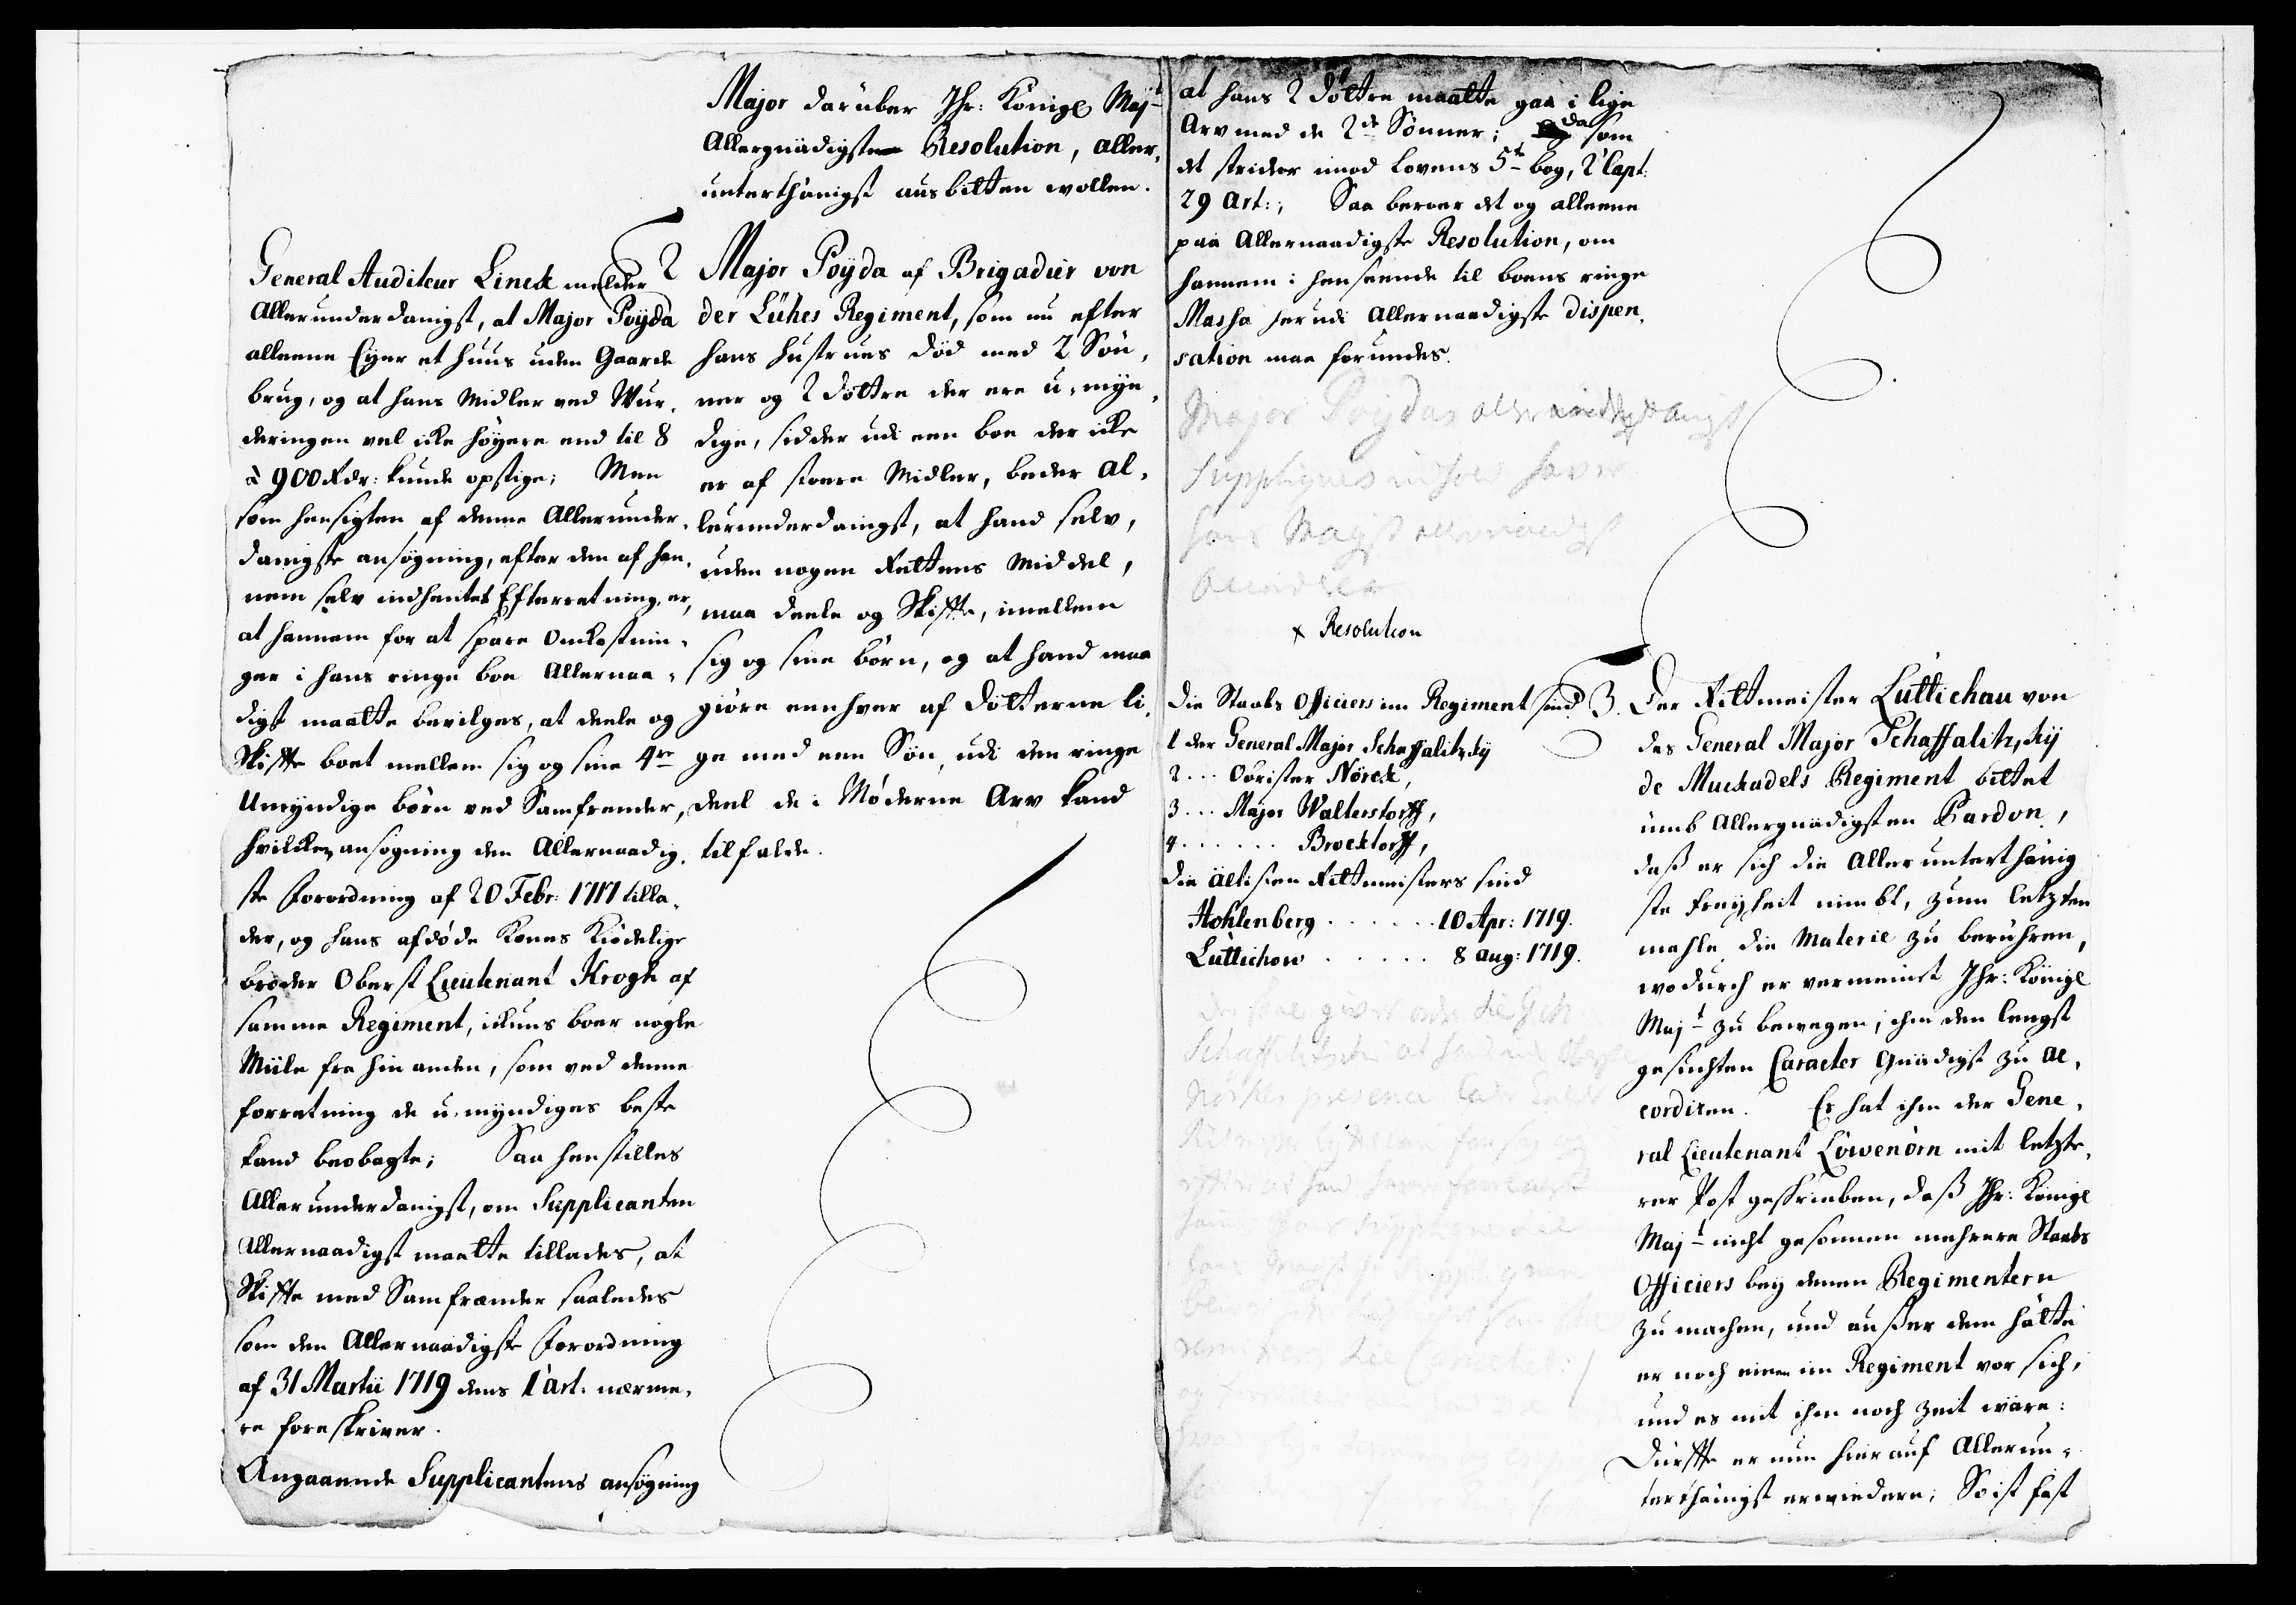 Major darüber Ihr: Königl Majt
Allergnädigste Resolution, aller,
unterthänigst ausbitten wollen.
General Auditeur Linck melder
Allerunderdanigst, at Major Poÿda
alleene Eÿer et huus uden Gaarde
brug, og at hans Midler ved Wur,
deringen vel icke höÿere end til 8
à 900 Rdr: kunde opstige; Men
som hensigten af denne Allerunder,
danigste ansøgning, efter den af han,
nem selv indhentet Efterretning, er,
at hannem for at spare Omkostnin,
ger i hans ringe boe Allernaa,
digst maatte bevilges, at deele og
Skiffte boet mellem sig og sine 4re
Umÿndige börn ved Samfrender,
hvilcken ansøgning den Allernaadig,
ste Forordning af 20 Febr: 1717 tilla,
der, og hans afdöde Kones Kiödelige
broder Oberst Lieutenant Krogh af
samme Regiment, ickuns boer nogle
Miile fra hin anden, som ved denne
forretning de u,mÿndiges beste
kand beobagte; Saa henstilles
Allerunderdanigst, om Supplicanten
Allernaadigst maatte tillades, at
Skiffte med Samfrænder saaledes
som den Allernaadigste Forordning
af 31 Martii 1719 dens 1 Art: nærme,
re foreskriver.
Angaaende Supplicantens ansøgning
2 Major Poÿda af Brigadier von
der Lühes Regiment, som nu efter
hans hustrues död med 2 Sön,
ner og 2 döttre der ere u,mÿn,
dige, sidder udi een boe der icke
er af stoere Midler, beder al,
lerunderdanigst, at hand selv,
uden nogen Rettens Middel,
maa deele og Skiffte, imellem
sig og sine börn, og at hand maa
giöre eenhver af Dötterne li,
ge med een Sön, udi den ringe
deel de i Møderne Arv kand
tilfalde.
at hans 2 döttre maatte gaa i lige
Arv med de 2de Sönner; da som
det strider imod Lovens 5te bog, 2 Capt:
29 Art:; Saa beroer det og alleene
paa Allernaadigste Resolution, om
hannem i henseende til boens ringe
Massa herudi Allernaadigste dispen,
sation maa forundes.
Major Poÿdas allerunderdanigst
Suppliques indhold haver
hans Mayst allernaadigst
x Resolution
Die Staabs Officiers im Regiment sind
1 der General Major Schaffalitzkÿ
2 . . . Obrister Nörck,
3 . . . Major Walterstorff,
4 . . . . . . Brocktorff,
Die ältisten Rittmeisters sind
Hohlenberg . . . . . . 10 Apr: 1719.
Lüttichow . . . . . . 8 Aug: 1719.
3. Der Rittmeister Lüttichau von
des General Major Schaffalitzkÿ
de Muckadels Regiment bittet
umb Allergnädigsten Pardon,
daß er sich die Allerunterthänig
ste Freÿheit nimbt, zum letzten
mahle die Materie zu berühren,
wodurch er vermeint Ihr: Königl
Majt zu bewegen, ihm den lengst
gesuchten Caracter Gnädigst zu ac,
cordiren. Es hat ihm der Gene,
ral Lieutenant Löwenörn mit letzte,
rer Post geschrieben, daß Ihr: Königl
Majt nicht gesonnen mehrere Staabs
Officiers beÿ denen Regimentern
zu machen, und außer dem hätte
er noch einen im Regiment vor sich,
und es mit ihm noch Zeit wäre:
Dürffte er nun hierauf Allerun,
terthänigst erwiedern; So ist fast